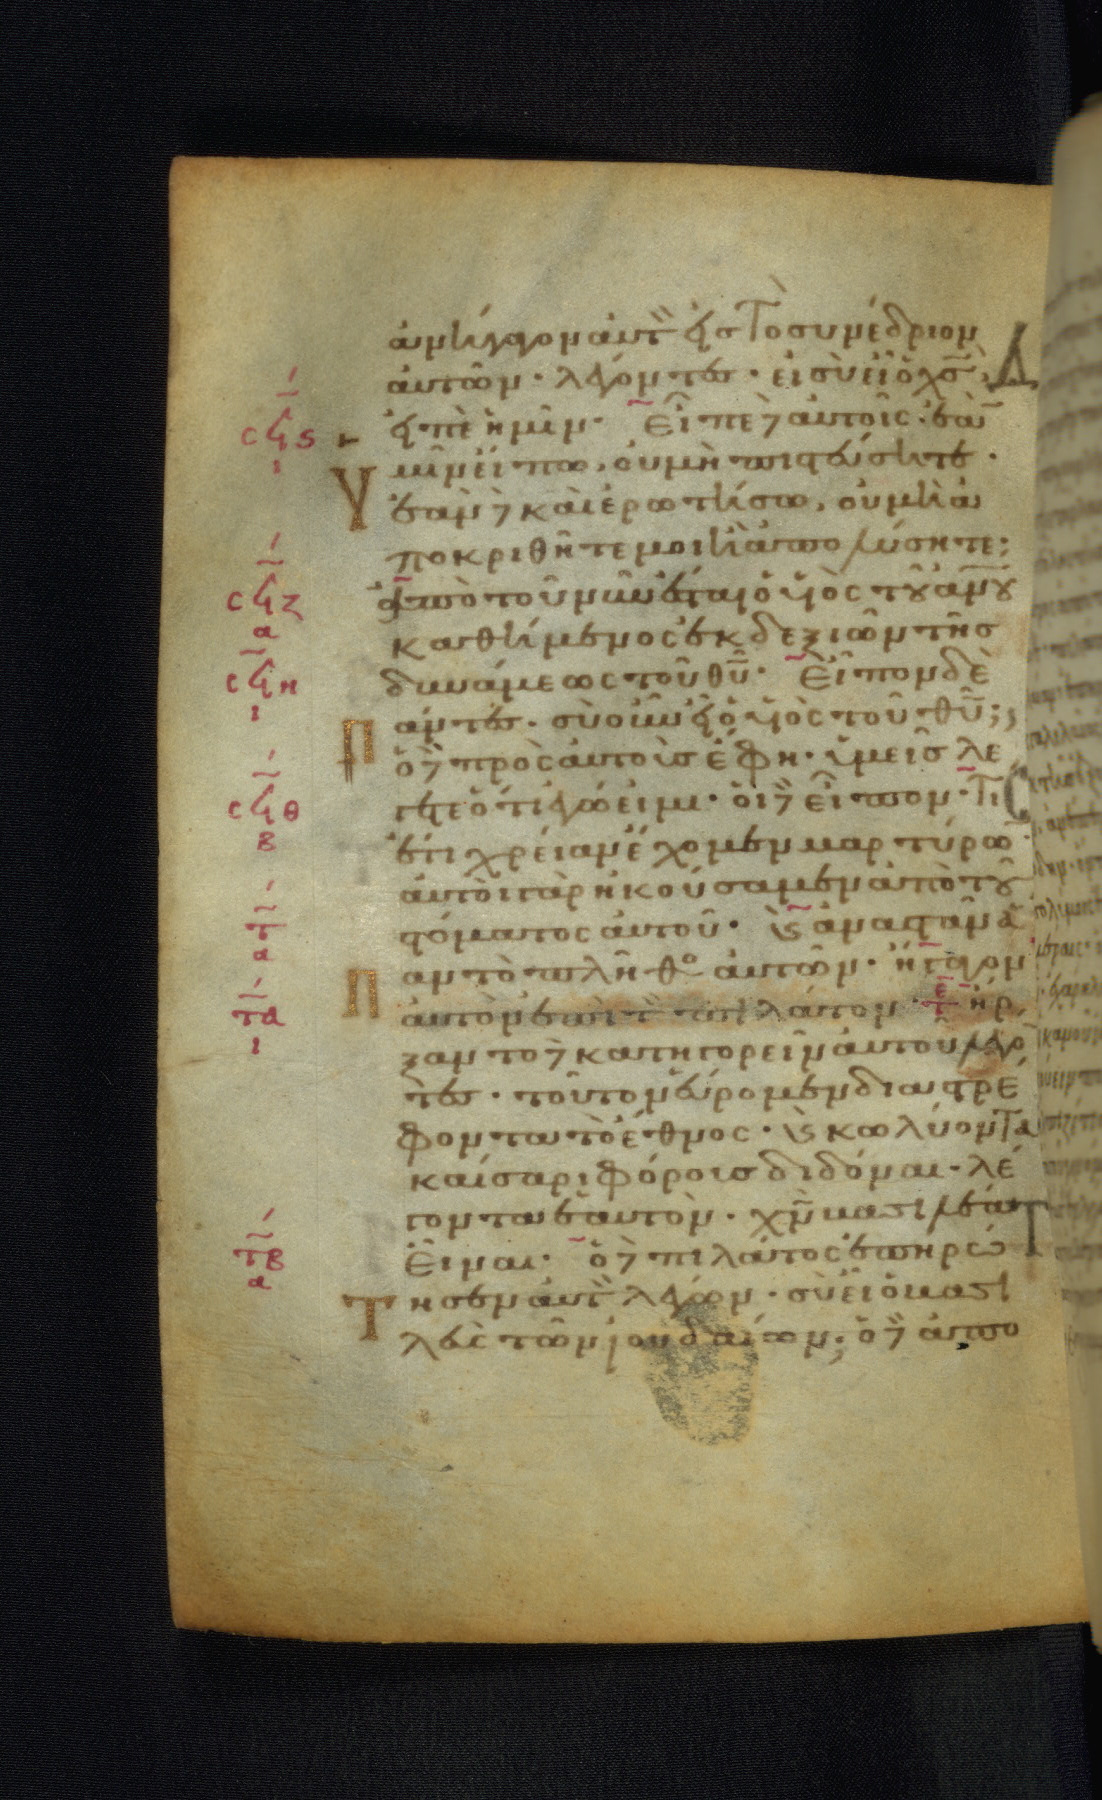 ἀνήγαγον αὐτὸν εἰς τὸ συνέδριον
αὐτῶν· λέγοντες· εἰ σὺ εἶ ὁ χς̄,
εἰπὲ ἡμῖν· Εἶπε δὲ αὐτοῖς· ἐὰν
ὑμῖν εἴπω, οὐ μὴ πιστεύσητε·
ἐὰν δὲ καὶ ἐρωτήσω, οὐ μὴ ἀ
ποκριθῆτέ μοι ἢ ἀπολύσητε;
ἀπὸ τοῦ νῦν ἔσται ὁ υἱὸς τοῦ ἀνου
καθήμενος ἐκ δεξιῶν τῆς
δυνάμεως τοῦ θῡ· Εἶπον δὲ
πάντες· σὺ οὖν εἶ ὁ υἱὸς τοῦ θῡ;
ὁ δὲ πρὸς αὐτοὺς ἔφη· ὑμεῖς λέ
γετε ὅτι ἐγώ εἰμι· οἱ δὲ εἶπον· Τί
ἔτι χρείαν ἔχομεν μαρτύρων
αὐτοὶ γὰρ ἠκούσαμεν ἀπὸ τοῦ
στόματος αὐτοῦ· καὶ ἀναστὰν ἅ
παν τὸ πλῆθος αὐτῶν· ἤγαγον
αὐτὸν ἐπὶ τὸν πιλάτον· ἤρ
ξαντο δὲ κατηγορεῖν αὐτοῦ λέγον
τες· τοῦτον εὕρομεν διαστρέ
φοντα τὸ ἔθνος· καὶ κωλύοντα
καίσαρι φόρους διδόναι· λέ
γοντα ἑαυτὸν· χν̄ βασιλέα
εἶναι· ὁ δὲ πιλάτος ἐπηρώ
τησεν αὐτὸν λέγων· σὺ εἶ ὁ βασι
λεὺς τῶν ἰουδαίων; ὁ δὲ ἀπο